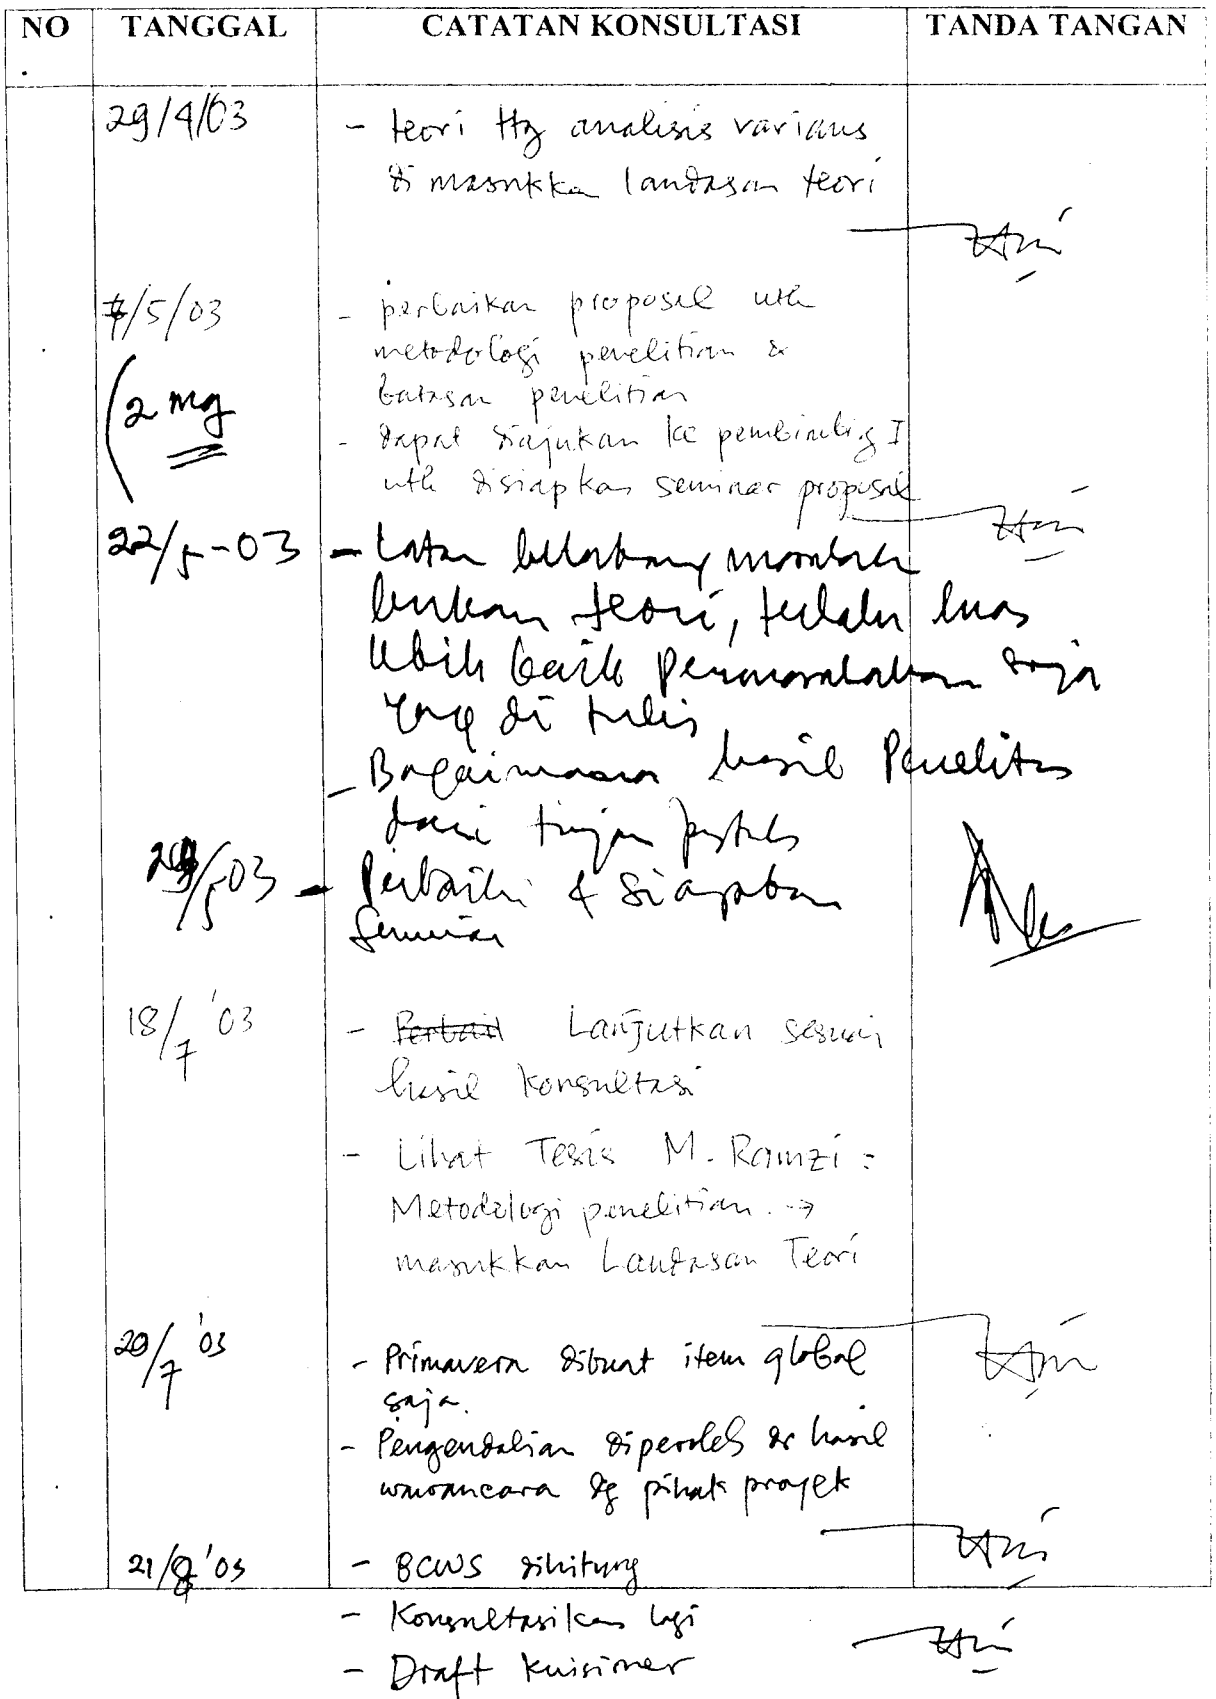 NO TANGGAL CATATAN KONSULTASI TANDA TANGAN
29/4/03 - teori ttg analisis varians
di masukka landasan teori
7/5/03 - perbaikan proposal utk
metodologi penelitian &
(2 mg batasan penelitian
- dapat diajukan ke pembimbig I
utk disiapkan seminar proposal
22/5-03 - Latar belakang masalah
bukan teori, terlalu luas
lebih baik permasalahan saja
yang di tulis
- Bagaimana hasil Penelitian
dari tinjau pustaka
/5 03 - Perbaiki & Siapkan
Seminar
18/7 '03 - Perbaik Lanjutkan sesuai
hasil konsultasi
- Lihat Tesis M. Ramzi :
Metodologi penelitian. →
masukkan Landasan Teori
20/7 '03 - Primavera dibuat item global
saja.
- Pengendalian diperoleh dr hasil
wawancara dg pihak proyek
21/8 '03 - BCWS dihitung
- Konsultasikan lagi
- Draft kuisioner